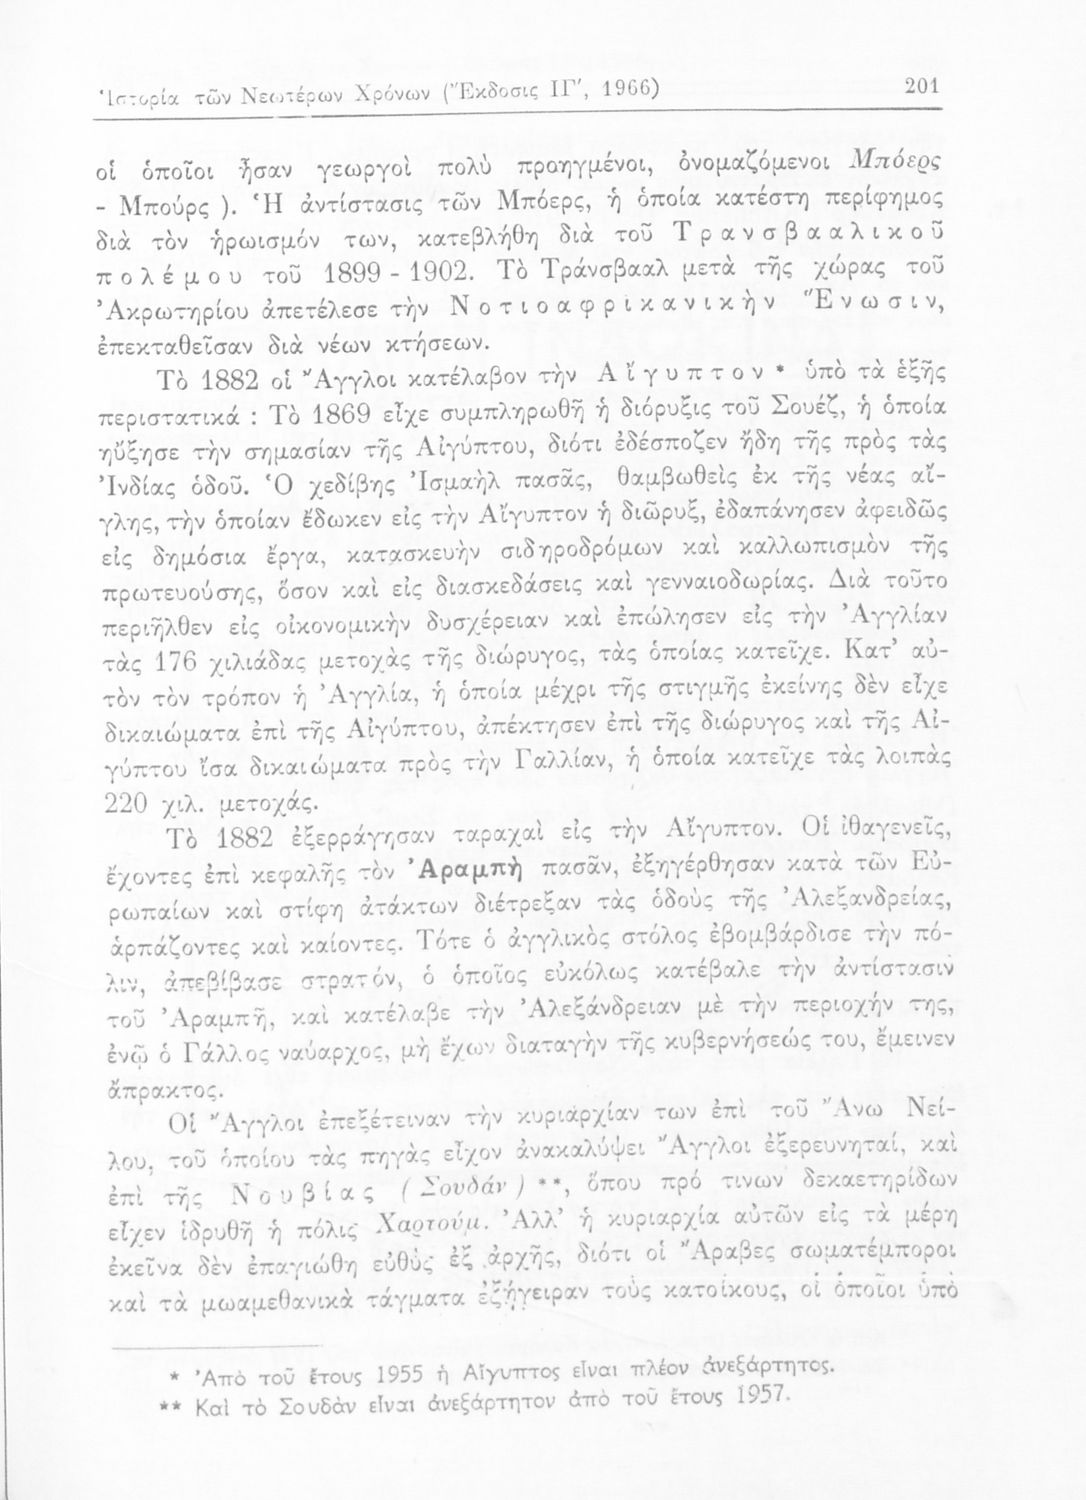 Ἱστορία τῶν Νεωτέρων Χρόνων (Ἔκδοσις ΙΓ', 1966) 201
οἱ ὁποῖοι ἦσαν γεωργοὶ πολὺ προηγμένοι, ὀνομαζόμενοι Μπόερς
- Μπούρς ). Ἡ ἀντίστασις τῶν Μπόερς, ἡ ὁποία κατέστη περίφημος
διὰ τὸν ἡρωισμόν των, κατεβλήθη διὰ τοῦ Τρανσβααλικοῦ
πολέμου τοῦ 1899 - 1902. Τὸ Τράνσβααλ μετὰ τῆς χώρας τοῦ
Ἀκρωτηρίου ἀπετέλεσε τὴν Νοτιοαφρικανικὴν Ἕνωσιν,
ἐπεκταθεῖσαν διὰ νέων κτήσεων.
Τὸ 1882 οἱ Ἄγγλοι κατέλαβον τὴν Αἴγυπτον * ὑπὸ τὰ ἑξῆς
περιστατικά : Τὸ 1869 εἶχε συμπληρωθῆ ἡ διόρυξις τοῦ Σουέζ, ἡ ὁποία
ηὔξησε τὴν σημασίαν τῆς Αἰγύπτου, διότι ἐδέσποζεν ἤδη τῆς πρὸς τὰς
Ἰνδίας ὁδοῦ. Ὁ χεδίβης Ἰσμαὴλ πασᾶς, θαμβωθεὶς ἐκ τῆς νέας αἴ-
γλης, τὴν ὁποίαν ἔδωκεν εἰς τὴν Αἴγυπτον ἡ διῶρυξ, ἐδαπάνησεν ἀφειδῶς
εἰς δημόσια ἔργα, κατασκευὴν σιδηροδρόμων καὶ καλλωπισμὸν τῆς
πρωτευούσης, ὅσον καὶ εἰς διασκεδάσεις καὶ γενναιοδωρίας. Διὰ τοῦτο
περιῆλθεν εἰς οἰκονομικὴν δυσχέρειαν καὶ ἐπώλησεν εἰς τὴν Ἀγγλίαν
τὰς 176 χιλιάδας μετοχὰς τῆς διώρυγος, τὰς ὁποίας κατεῖχε. Κατ' αὐ-
τὸν τὸν τρόπον ἡ Ἀγγλία, ἡ ὁποία μέχρι τῆς στιγμῆς ἐκείνης δὲν εἶχε
δικαιώματα ἐπὶ τῆς Αἰγύπτου, ἀπέκτησεν ἐπὶ τῆς διώρυγος καὶ τῆς Αἰ-
γύπτου ἴσα δικαιώματα πρὸς τὴν Γαλλίαν, ἡ ὁποία κατεῖχε τὰς λοιπὰς
220 χιλ. μετοχάς.
Τὸ 1882 ἐξερράγησαν ταραχαὶ εἰς τὴν Αἴγυπτον. Οἱ ἰθαγενεῖς,
ἔχοντες ἐπὶ κεφαλῆς τὸν Ἀραμπὴ πασᾶν, ἐξηγέρθησαν κατὰ τῶν Εὐ-
ρωπαίων καὶ στίφη ἀτάκτων διέτρεξαν τὰς ὁδοὺς τῆς Ἀλεξανδρείας,
ἁρπάζοντες καὶ καίοντες. Τότε ὁ ἀγγλικὸς στόλος ἐβομβάρδισε τὴν πό-
λιν, ἀπεβίβασε στρατόν, ὁ ὁποῖος εὐκόλως κατέβαλε τὴν ἀντίστασιν
τοῦ Ἀραμπῆ, καὶ κατέλαβε τὴν Ἀλεξάνδρειαν μὲ τὴν περιοχήν της,
ἐνῷ ὁ Γάλλος ναύαρχος, μὴ ἔχων διαταγὴν τῆς κυβερνήσεώς του, ἔμεινεν
ἄπρακτος.
Οἱ Ἄγγλοι ἐπεξέτειναν τὴν κυριαρχίαν των ἐπὶ τοῦ Ἄνω Νεί-
λου, τοῦ ὁποίου τὰς πηγὰς εἶχον ἀνακαλύψει Ἄγγλοι ἐξερευνηταί, καὶ
ἐπὶ τῆς Νουβίας ( Σουδάν ) **, ὅπου πρό τινων δεκαετηρίδων
εἶχεν ἱδρυθῆ ἡ πόλις Χαρτούμ. Ἀλλ' ἡ κυριαρχία αὐτῶν εἰς τὰ μέρη
ἐκεῖνα δὲν ἐπαγιώθη εὐθὺς ἐξ ἀρχῆς, διότι οἱ Ἄραβες σωματέμποροι
καὶ τὰ μωαμεθανικὰ τάγματα ἐξήγειραν τοὺς κατοίκους, οἱ ὁποῖοι ὑπὸ
* Ἀπὸ τοῦ ἔτους 1955 ἡ Αἴγυπτος εἶναι πλέον ἀνεξάρτητος.
** Καὶ τὸ Σουδὰν εἶναι ἀνεξάρτητον ἀπὸ τοῦ ἔτους 1957.